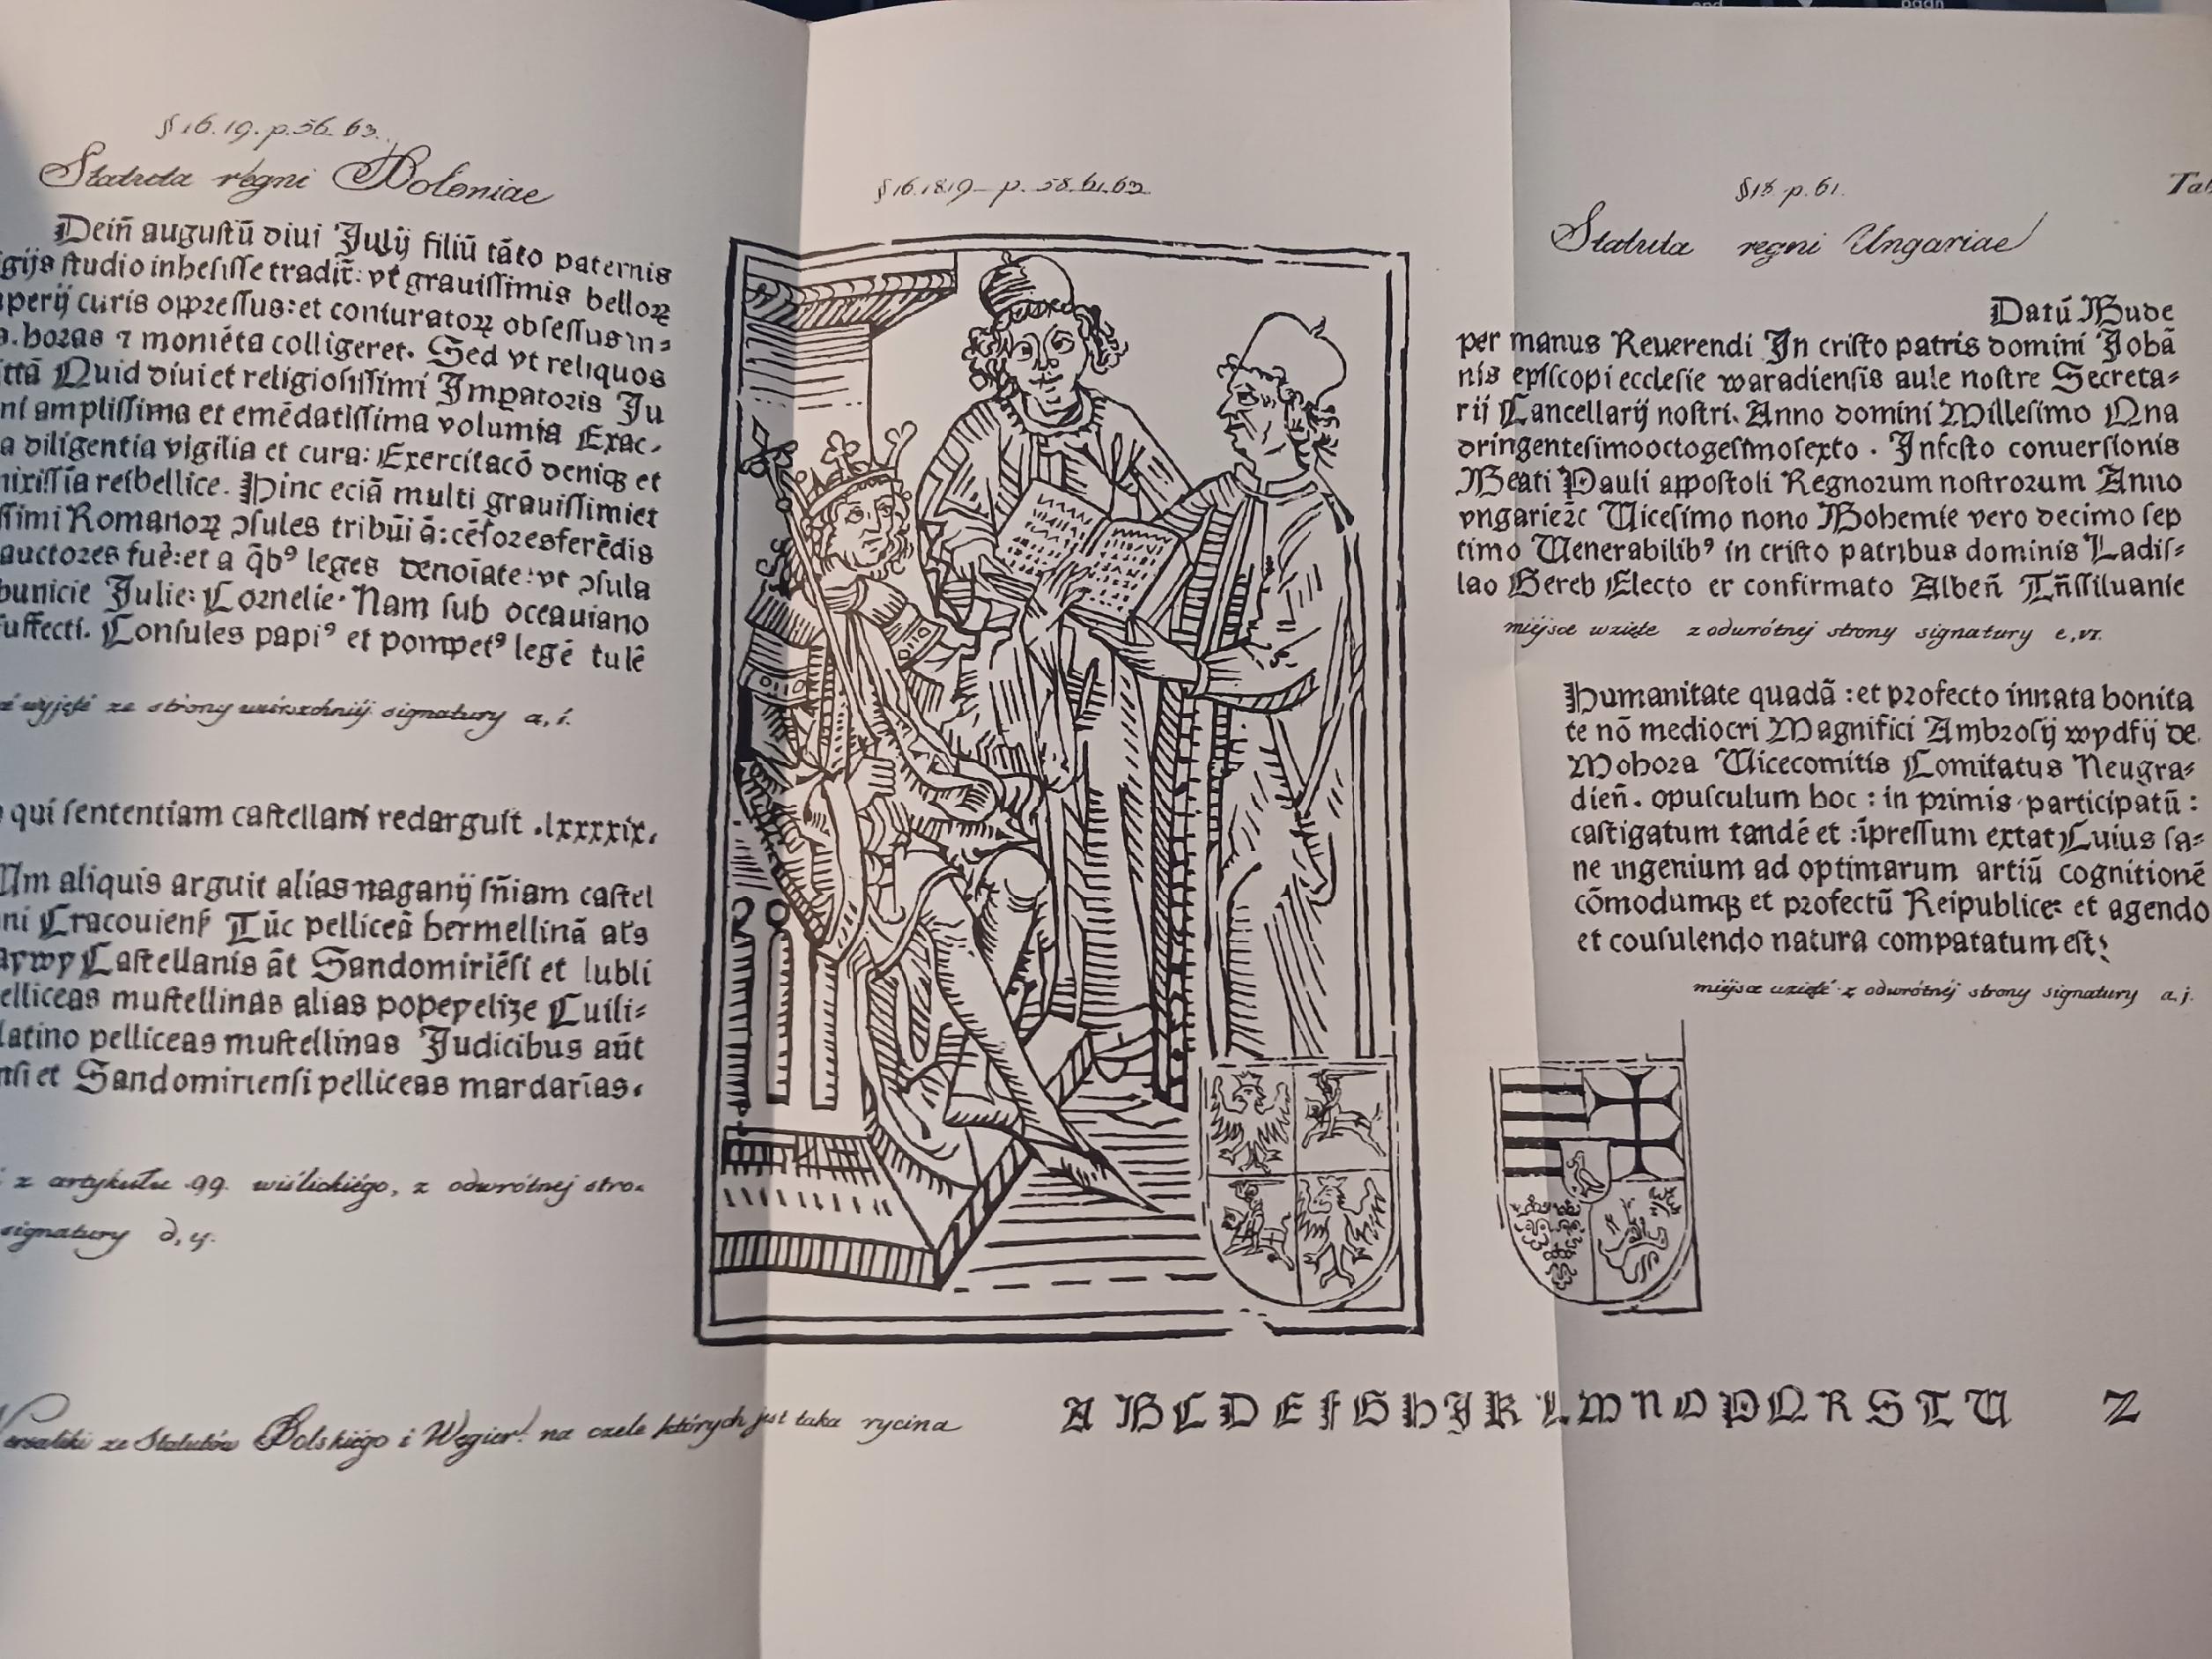 § 16. 19. p. 56. 63.
Statuta regni Poloniae
Deiñ auguſtũ diui Julij filiũ tãto paternis
gijs ſtudio inheſiſſe tradit̃: vt grauiſſimis belloꝝ
perij curis oppreſſus: et coniuratoꝝ obſeſſus in⸗
horas ⁊ momẽta colligeret. Sed vt reliquos
ittã Quid diui et religioſiſſimi Impatoris Ju
ni ampliſſima et emẽdatiſſima volumia Exac⸗
a diligentia vigilia et cura: Exercitacõ deniqꝫ et
iriſſĩa reſbellice. Hinc eciã multi grauiſſimi et
ſſimi Romanoꝝ ↄſules tribũi ã: cẽſores ferẽdis
auctores fuẽ: et a q̃bꝰ leges denoĩate: vt ↄſula
bunicie Julie: Cornelie. Nam ſub octauiano
ſuffecti. Conſules papiꝰ et pompeꝰ legẽ tulẽ
wyjęté ze strony wiérzchniéj signatury a, i.
qui ſententiam caſtellani redarguit .lxxxxix.
Um aliquis arguit alias naganij ſñiam caſtel
ni Cracouienſ Tũc pelliceã hermellinã als
aywy Caſtellanis ãt Sandomiriẽſi et lubli
elliceas muſtellinas alias popeyelize Cuili⸗
latino pelliceas muſtellinas Judicibus aũt
nſi et Sandomirienſi pelliceas mardarias.
z artykułu 99. wiślickiégo, z odwrótnej stro⸗
signatury d, y.
§ 16. 18. 19 – p. 58. 61. 63.
§ 18. p. 61.
Statuta regni Ungariae
Datũ Bude
per manus Reuerendi In criſto patris domini Johã
nis epiſcopi eccleſie waradienſis aule noſtre Secreta⸗
rij Cancellarij noſtri. Anno domini Milleſimo Qua
dringenteſimooctogeſimoſexto . In feſto conuerſionis
Beati Pauli appoſtoli Regnorum noſtrorum Anno
vngarie ꝛc Viceſimo nono Bohemie vero decimo ſep
timo Venerabilibꝰ in criſto patribus dominis Ladiſ⸗
lao Gereb Electo et confirmato Albeñ Trñſſiluanie
miejsce wzięte z odwrótnej strony signatury e, vi.
Humanitate quadã : et profecto innata bonita
te nõ mediocri Magnifici Ambroſij wydfij de
Mohora Vicecomitis Comitatus Neugra⸗
dieñ . opuſculum hoc : in primis participatũ :
caſtigatum tandẽ et : ĩpreſſum extat Cuius ſa⸗
ne ingenium ad optimarum artiũ cognitionẽ
cõmodumqꝫ et profectũ Reipublice: et agendo
et couſulendo natura compatatum eſt:
miejsce wzięté z odwrótnéj strony signatury a. j.
Wersaliki ze Statutów Polskiégo i Węgier. na czele których jest taka rycina
A B C D E F G H J K L M N O P Q R S T U Z